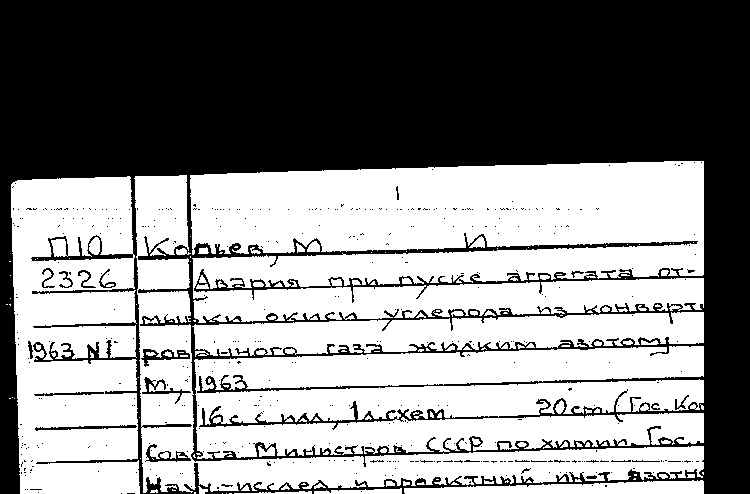 1
П10 Копьев, М И
2326 Авария при пуске агрегата от-
мывки окиси углерода из конверти
1963 N1 рованного газа жидким азотом
М., 1963
16 с. с илл., 1 л. схем. 20 cm. (Гос. Ком
Совета Министров СССР по химии. Гос.
Науч.-исслед. и проектный ин-т азотно